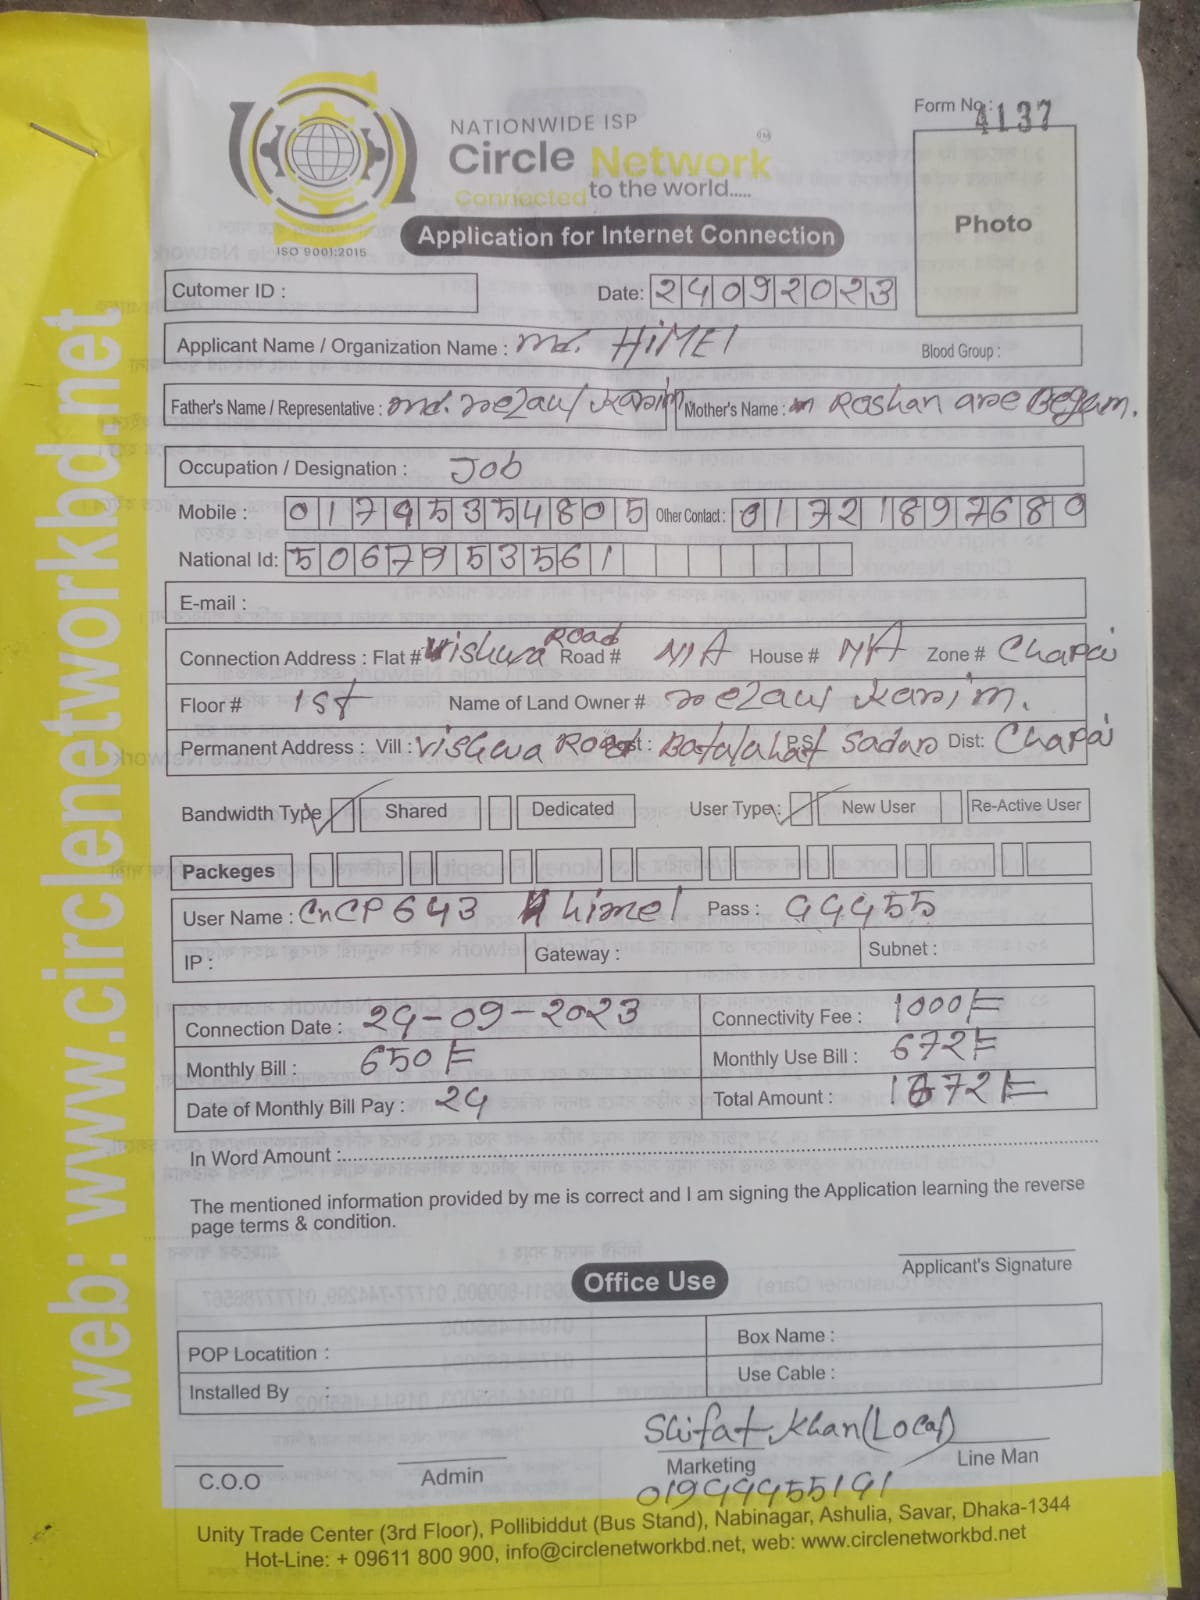 web: www.circlenetworkbd.net
Form No.: 4137
NATIONWIDE ISP
Circle Network
Connected to the world.....
ISO 9001:2015
Application for Internet Connection
Photo
Cutomer ID :
Date: 24092023
Applicant Name / Organization Name : Md. HiMEl
Blood Group :
Father's Name / Representative : Md. Rezaul Karim Mother's Name : Roshan are Begum.
Occupation / Designation : Job
Mobile : 01795354805 Other Contact : 01721897680
National Id: 5067953561
E-mail :
Connection Address : Flat # Vishwa Road Road # N/A House # N/A Zone # Chapai
Floor # 1st Name of Land Owner # Rezaul Karim.
Permanent Address : Vill : Vishwa Road Post : Batalahat P.S Sadar Dist: Chapai
Bandwidth Type Shared Dedicated User Type : New User Re-Active User
Packeges
User Name : CnCP643 himel Pass : 99455
IP : Gateway : Subnet :
Connection Date : 24-09-2023 Connectivity Fee : 1000/=
Monthly Bill : 650/= Monthly Use Bill : 672/=
Date of Monthly Bill Pay : 24 Total Amount : 1672/=
In Word Amount :
The mentioned information provided by me is correct and I am signing the Application learning the reverse
page terms & condition.
Applicant's Signature
Office Use
POP Locatition : Box Name :
Installed By : Use Cable :
Shifat Khan (Local)
C.O.O Admin Marketing Line Man
01999955191
Unity Trade Center (3rd Floor), Pollibiddut (Bus Stand), Nabinagar, Ashulia, Savar, Dhaka-1344
Hot-Line: + 09611 800 900, info@circlenetworkbd.net, web: www.circlenetworkbd.net